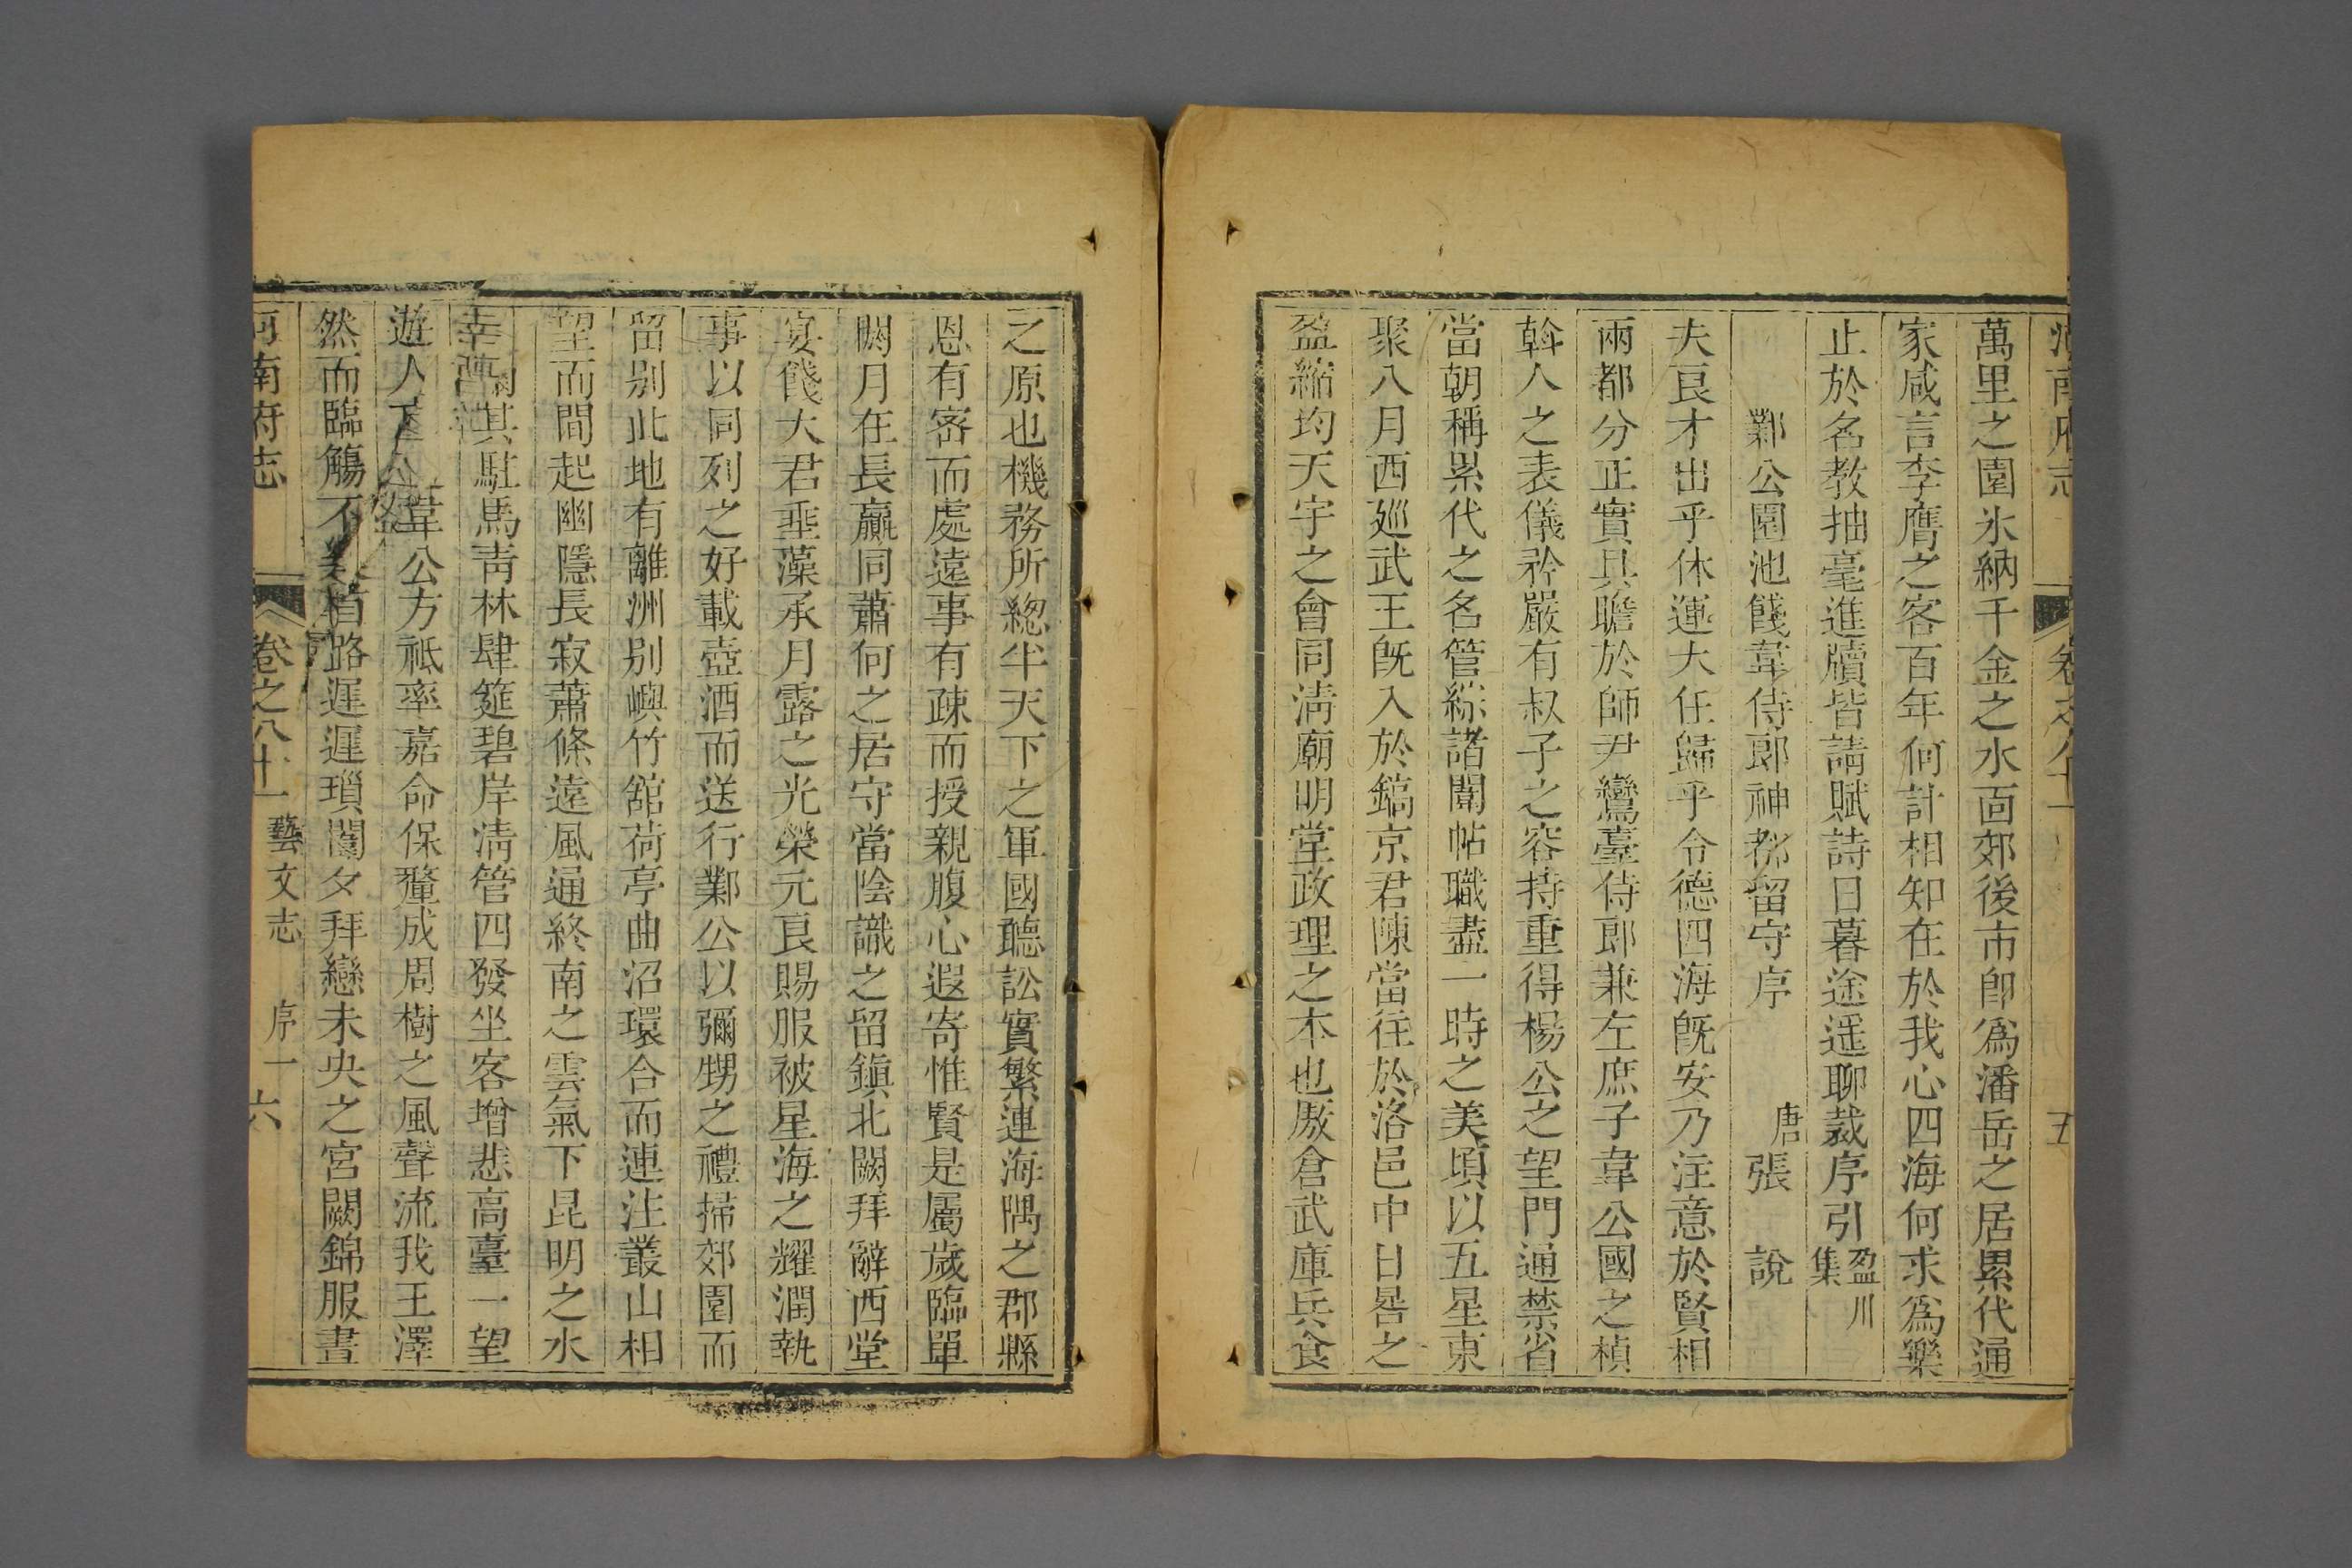 河南府志 卷之八十一 五
萬里之園氷納千金之水面郊後市卽爲潘岳之居累代通
家咸言李膺之客百年何計相知在於我心四海何求爲樂
止於名教抽毫進牘皆請賦詩日暮途遥聊裁序引盈川集
鄴公園池餞韋侍郎神都留守序 唐張說
夫良才出乎休運大任歸乎令德四海旣安乃注意於賢相
兩都分正實具瞻於師尹鸞臺侍郎兼左庶子韋公國之楨
幹人之表儀矜嚴有叔子之容持重得楊公之望門通禁省
當朝稱累代之名管綜諸闈帖職盡一時之美頃以五星東
聚八月西廵武王旣入於鎬京君陳當往於洛邑中日晷之
盈縮均天宇之會同淸廟明堂政理之本也厫倉武庫兵食
之原也機務所總半天下之軍國聽訟實繁連海隅之郡縣
恩有密而處遠事有疎而授親腹心遐寄惟賢是屬歲臨單
閼月在長贏同蕭何之居守當陰識之留鎭北闕拜辭西堂
宴餞大君垂藻承月露之光榮元良賜服被星海之耀潤執
事以同列之好載壺酒而送行鄴公以彌甥之禮掃郊園而
留别此地有離洲别嶼竹舘荷亭曲沼環合而連注叢山相
望而間起幽隱長寂蕭條遠風通終南之雲氣下昆明之水
其駐馬靑林肆筵碧岸淸管四發坐客增悲高臺一望
遊人下 韋公方祗率嘉命保釐成周樹之風聲流我王澤
然而臨觴不 路遲遲瑣闈夕拜戀未央之宮闕錦服晝
河南府志 卷之八十一 藝文志 序一 六